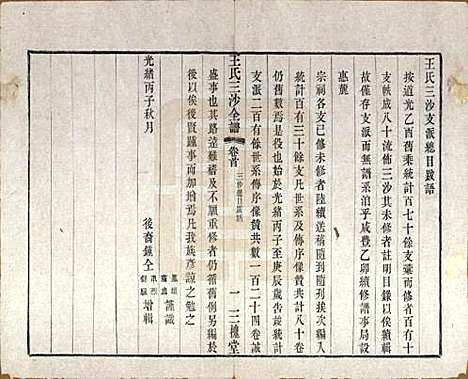 王氏三沙支派總目跋語
按道光乙酉舊乘統計百七十餘支彙而修者百有十
支帙成八十流佈三沙其未修者註明目錄以俟續修
故僅存支派而無譜系洎乎咸豐乙卯續修譜事局設
惠麓
宗祠各支已修未修者陸續送稿隨到隨刋挨次編定
統計百有三十餘支凡世系傳序像贊共計八十卷
仍舊數焉是役也始於光緒丙子至庚辰歲告竣統計
支派二百有餘世系傳序像贊共數一百二十四卷誠
盛事也其路遠難稽及不願重修者仍循舊例另編於
後以俟後賢踵事而加增焉凡我族彥諒之勉之
光緒丙子秋月
後裔鍾 仝
謹識
增輯
王氏三沙全譜
卷首
三沙總目跋語
一
三槐堂